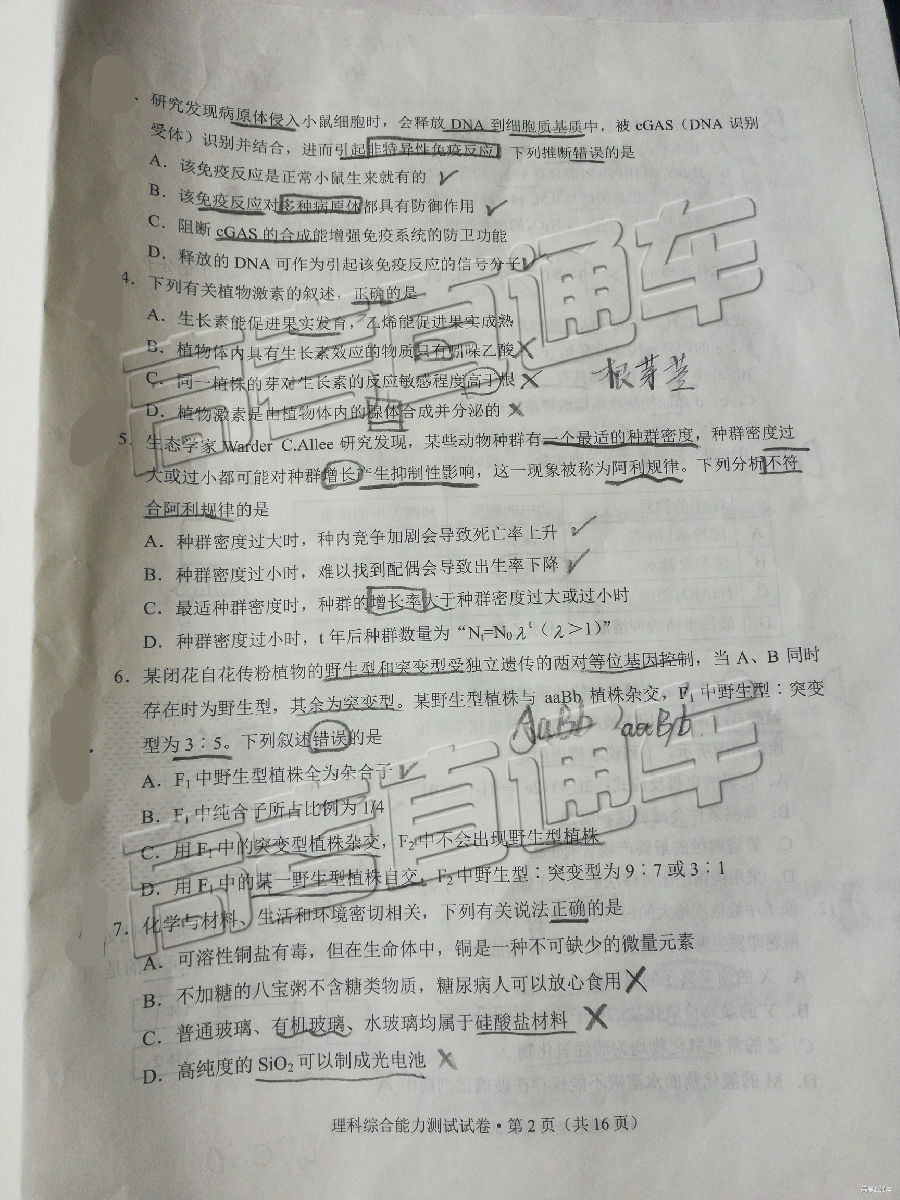 、研究发现病原体侵入小鼠细胞时，会释放 DNA 到细胞质基质中，被 cGAS（DNA 识别
受体）识别并结合，进而引起非特异性免疫反应。下列推断错误的是
A．该免疫反应是正常小鼠生来就有的 ✓
B．该免疫反应对多种病原体都具有防御作用 ✓
C．阻断 cGAS 的合成能增强免疫系统的防卫功能
D．释放的 DNA 可作为引起该免疫反应的信号分子 ✓
4．下列有关植物激素的叙述，正确的是
A．生长素能促进果实发育，乙烯能促进果实成熟
B．植物体内具有生长素效应的物质只有吲哚乙酸 ×
C．同一植株的芽对生长素的反应敏感程度高于根 × 根芽茎
D．植物激素是由植物体内的腺体合成并分泌的 ×
5．生态学家 Warder C.Allee 研究发现，某些动物种群有一个最适的种群密度，种群密度过
大或过小都可能对种群增长产生抑制性影响，这一现象被称为阿利规律。下列分析不符
合阿利规律的是
A．种群密度过大时，种内竞争加剧会导致死亡率上升 ✓
B．种群密度过小时，难以找到配偶会导致出生率下降 ✓
C．最适种群密度时，种群的增长率大于种群密度过大或过小时
D．种群密度过小时，t 年后种群数量为“Nt=N0λt（λ＞1）”
6．某闭花自花传粉植物的野生型和突变型受独立遗传的两对等位基因控制，当 A、B 同时
存在时为野生型，其余为突变型。某野生型植株与 aaBb 植株杂交，F1 中野生型∶突变
型为 3∶5。下列叙述错误的是 AaBb aaBb
A．F1 中野生型植株全为杂合子 ✓
B．F1 中纯合子所占比例为 1/4
C．用 F1 中的突变型植株杂交，F2 中不会出现野生型植株
D．用 F1 中的某一野生型植株自交，F2 中野生型∶突变型为 9∶7 或 3∶1
7．化学与材料、生活和环境密切相关，下列有关说法正确的是
A．可溶性铜盐有毒，但在生命体中，铜是一种不可缺少的微量元素
B．不加糖的八宝粥不含糖类物质，糖尿病人可以放心食用 ×
C．普通玻璃、有机玻璃、水玻璃均属于硅酸盐材料 ×
D．高纯度的 SiO2 可以制成光电池 ×
理科综合能力测试试卷·第 2 页（共 16 页）
高考直通车
高考直通车